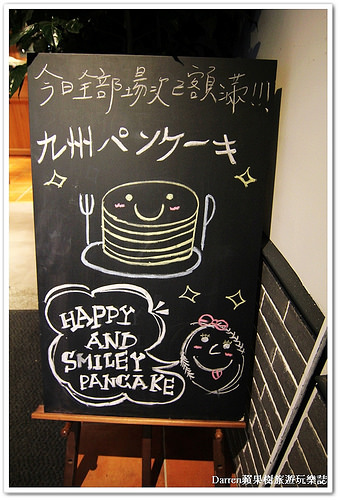 今日全部場次已額滿!!!
九州パンケーキ
HAPPY
AND
SMILEY
PANCAKE
Darren蘋果樹旅遊玩樂誌